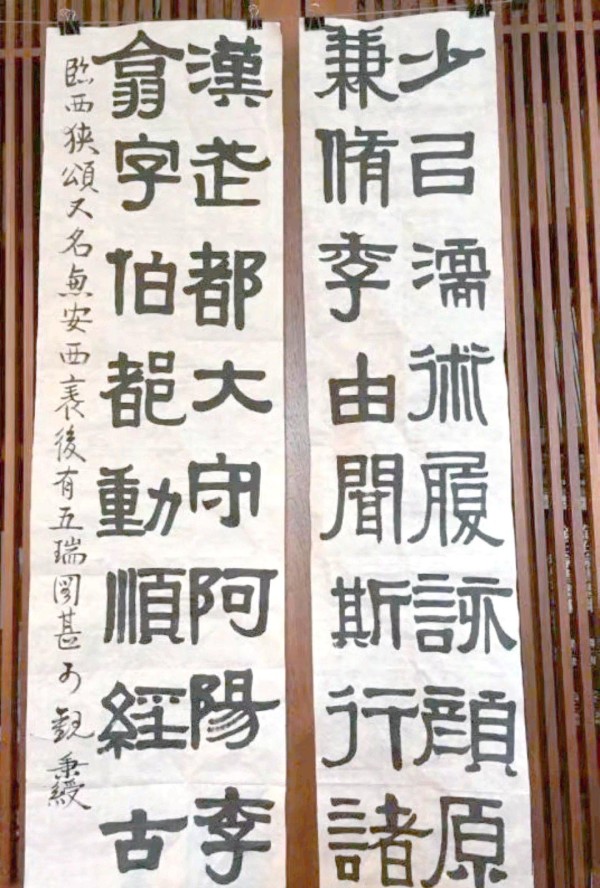 少㠯濡術履詠顔原
兼脩季由聞斯行諸
漢武都大守阿陽李
翕字伯都動順經古
臨西狹頌又名惠安西表後有五瑞圖甚可觀 秉綬